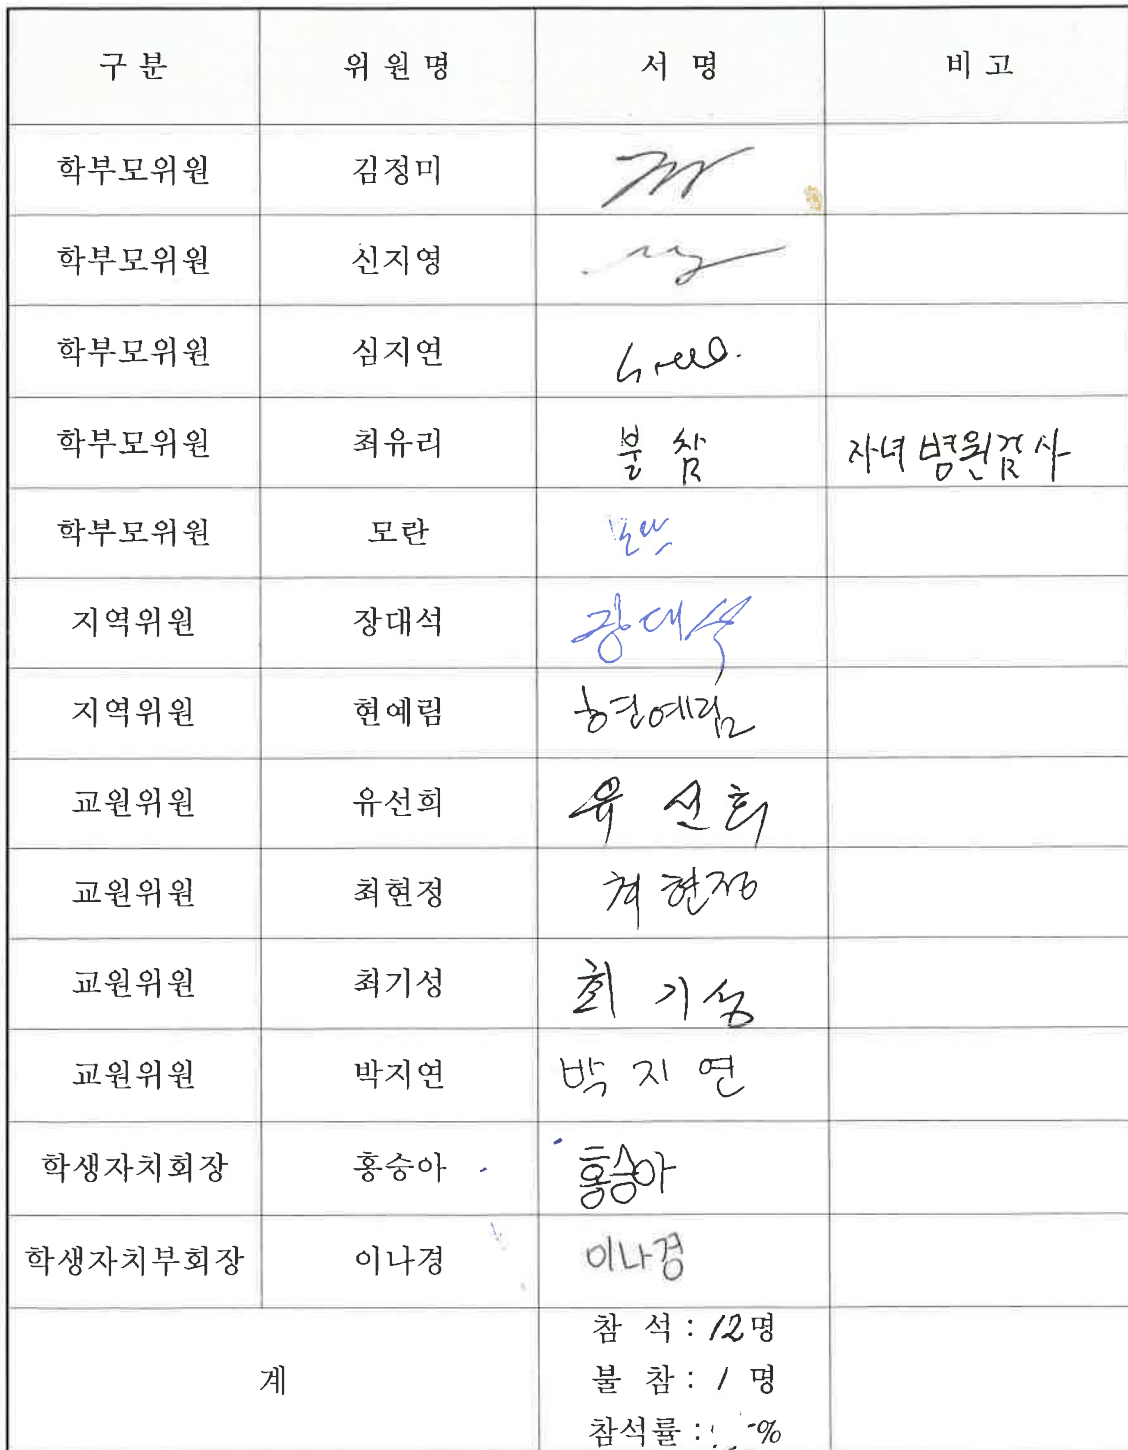 구 분 위 원 명 서 명 비 고
학부모위원 김정미
학부모위원 신지영
학부모위원 심지연
학부모위원 최유리 불 참 자녀 병원검사
학부모위원 모란 모란
지역위원 장대석 장대석
지역위원 현예림 현예림
교원위원 유선희 유 선희
교원위원 최현정 최현정
교원위원 최기성 최 기성
교원위원 박지연 박 지 연
학생자치회장 홍승아 홍승아
학생자치부회장 이나경 이나경
참 석 : 12명
계 불 참 : 1 명
참석률 : %